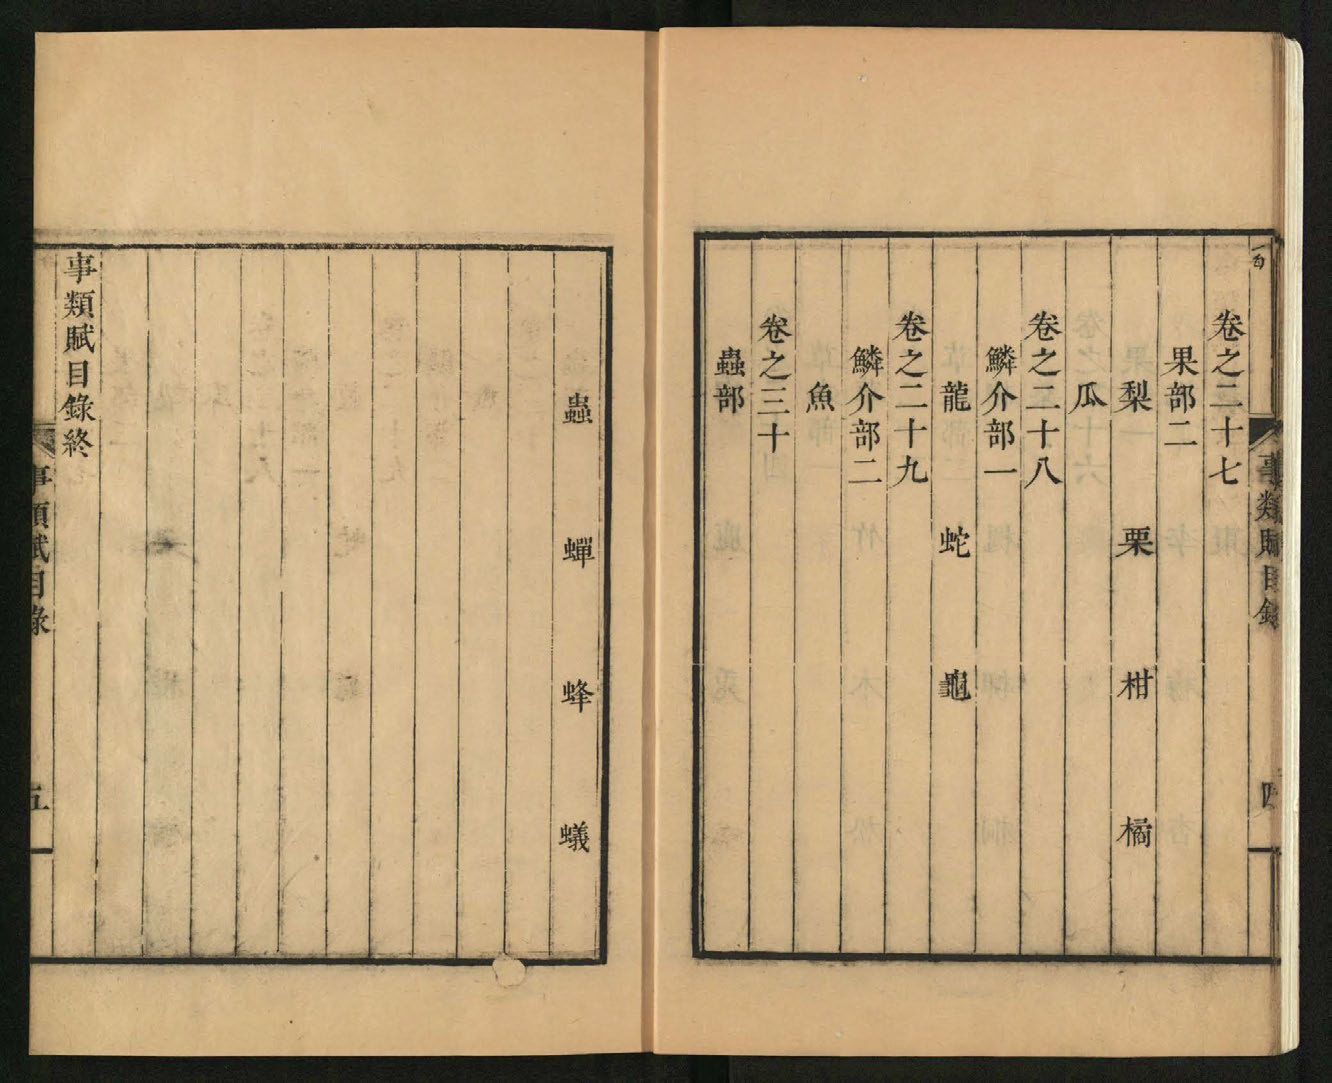 事類賦目錄
卷之二十七
果部二
梨 栗 柑 橘
瓜
卷之二十八
鱗介部一
龍 蛇 龜
卷之二十九
鱗介部二
魚
卷之三十
蟲部
蟲 蟬 蜂 蟻
事類賦目錄終
事類賦目錄
五